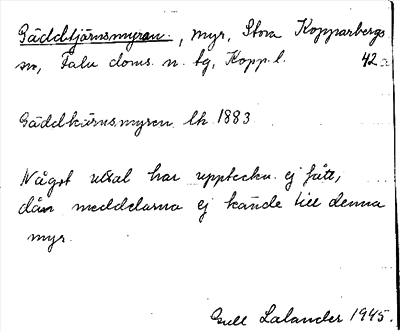 Gäddtjärnsmyran., myr, Stora Kopparbergs
sn, Falu doms. n. tg, Kopp. l. 42a
Gäddkärnsmyren lk 1883
Något uttal har uppteckn. ej fått,
då meddelarna ej kände till denna
myr.
Gull Lalander 1945.